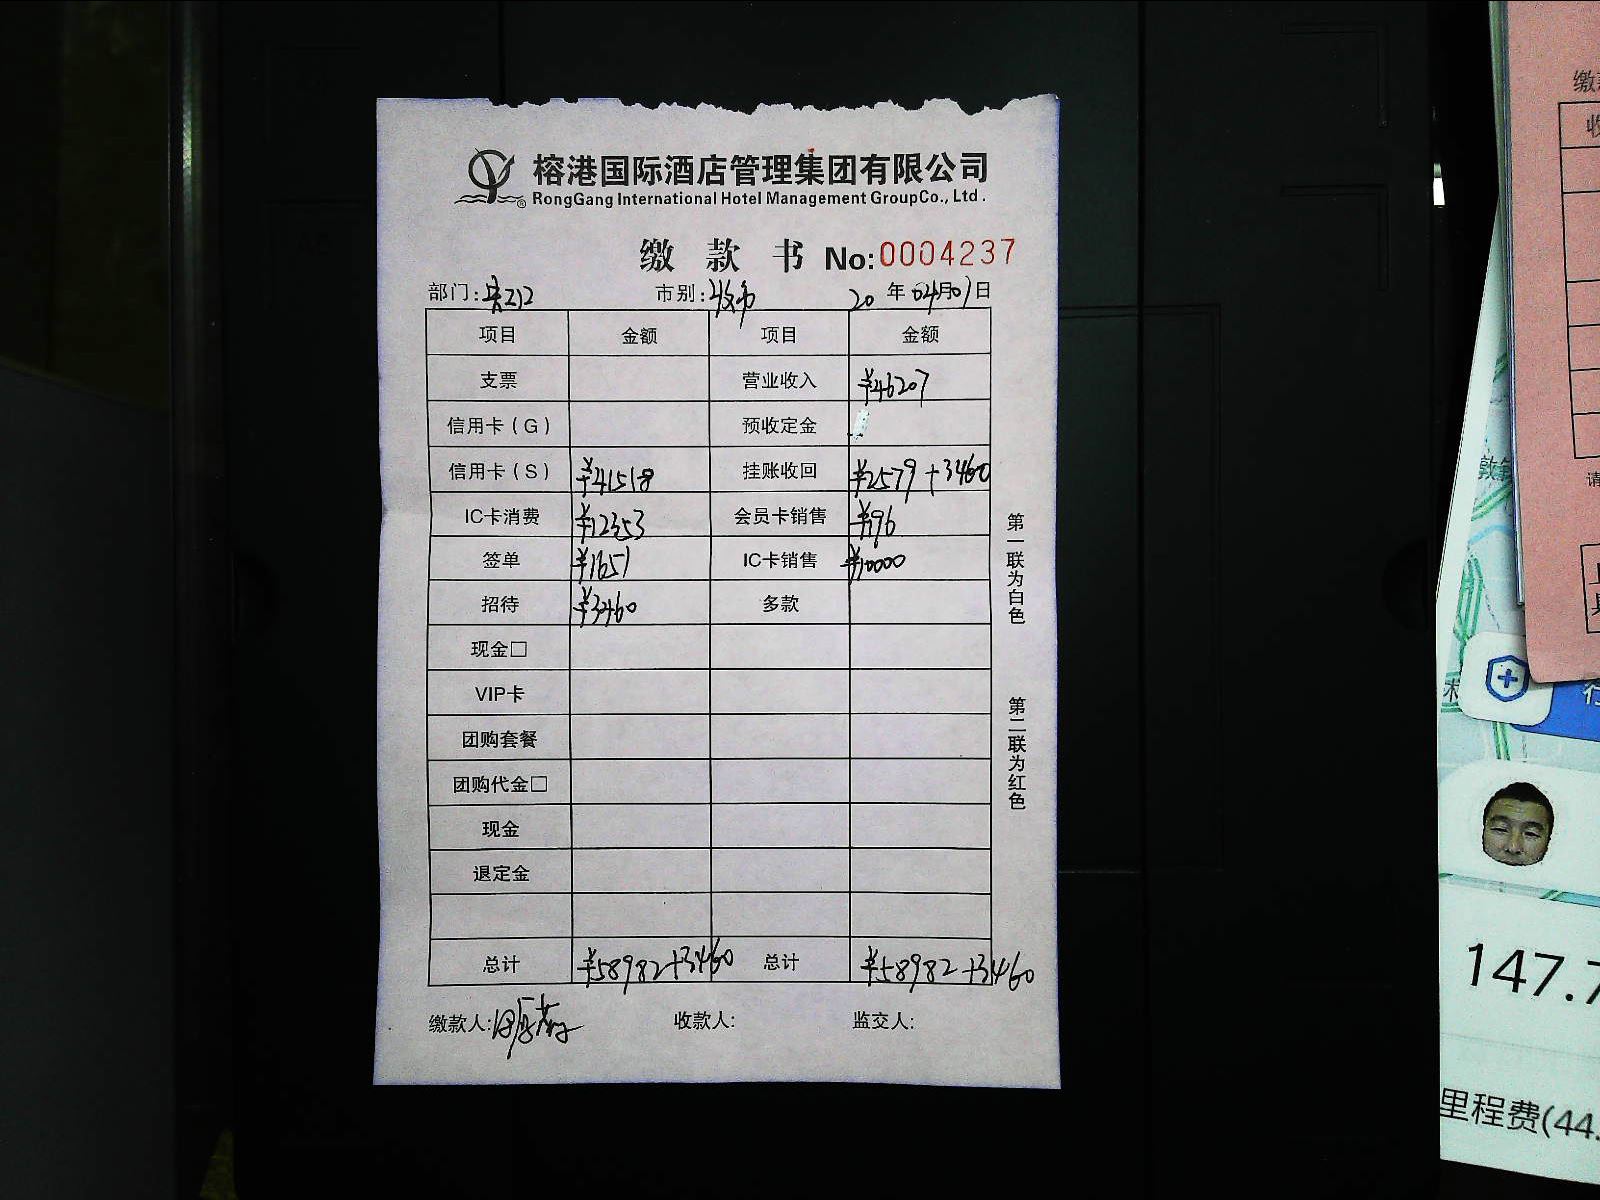 榕港国际酒店管理集团有限公司
RongGang International Hotel Management GroupCo., Ltd .
缴 款 书 No:0004237
部门: 市别: 20 年 04月01日
项目 金额 项目 金额
支票 营业收入 ¥46207
信用卡(G) 预收定金
信用卡(S) ¥41518 挂账收回 ¥2579+3460
IC卡消费 ¥12353 会员卡销售 ¥196
签单 ¥1651 IC卡销售 ¥10000
招待 ¥3460 多款
现金□
VIP卡
团购套餐
团购代金□
现金
退定金
总计 ¥58982+3460 总计 ¥58982+3460
缴款人: 收款人: 监交人:
第一联为白色
第二联为红色
缴
收
请
147.7
里程费(44.